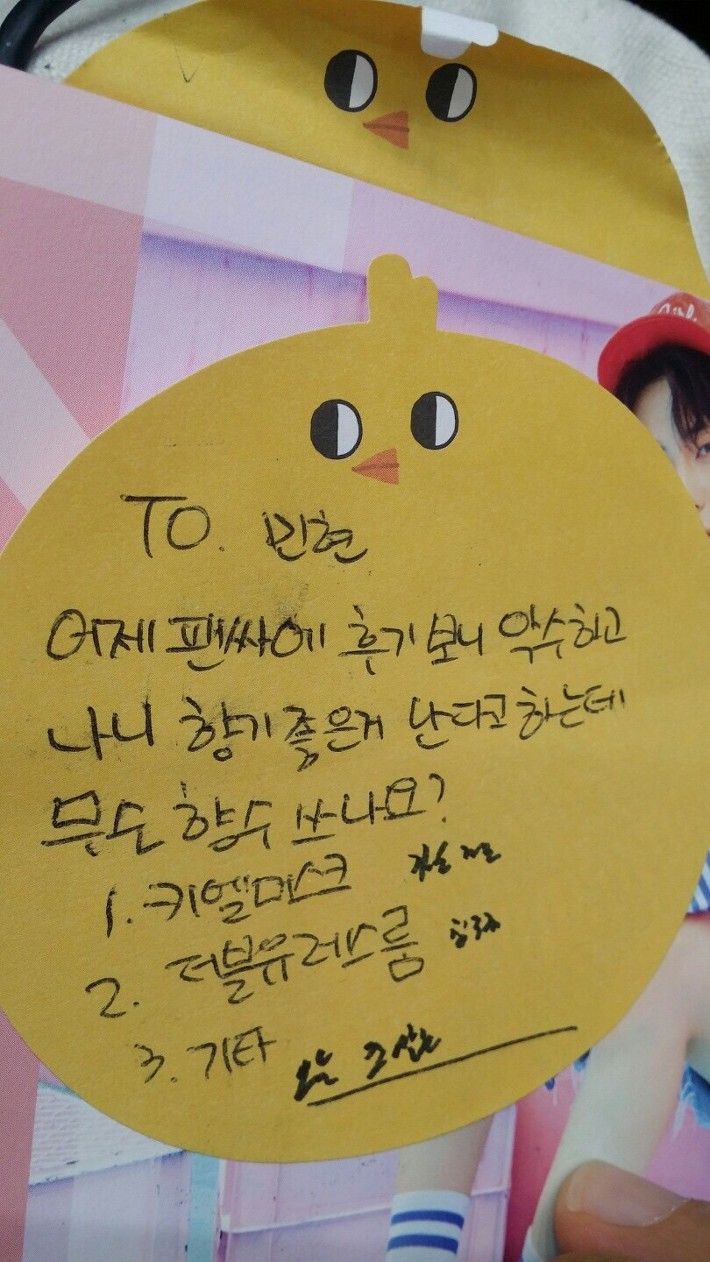 TO. 민현
어제 팬싸에 후기보니 악수하고
나니 향기좋은거 난다고하는데
무슨 향수 쓰나요?
1. 키엘머스크
2. 더블유레스룸
3. 기타